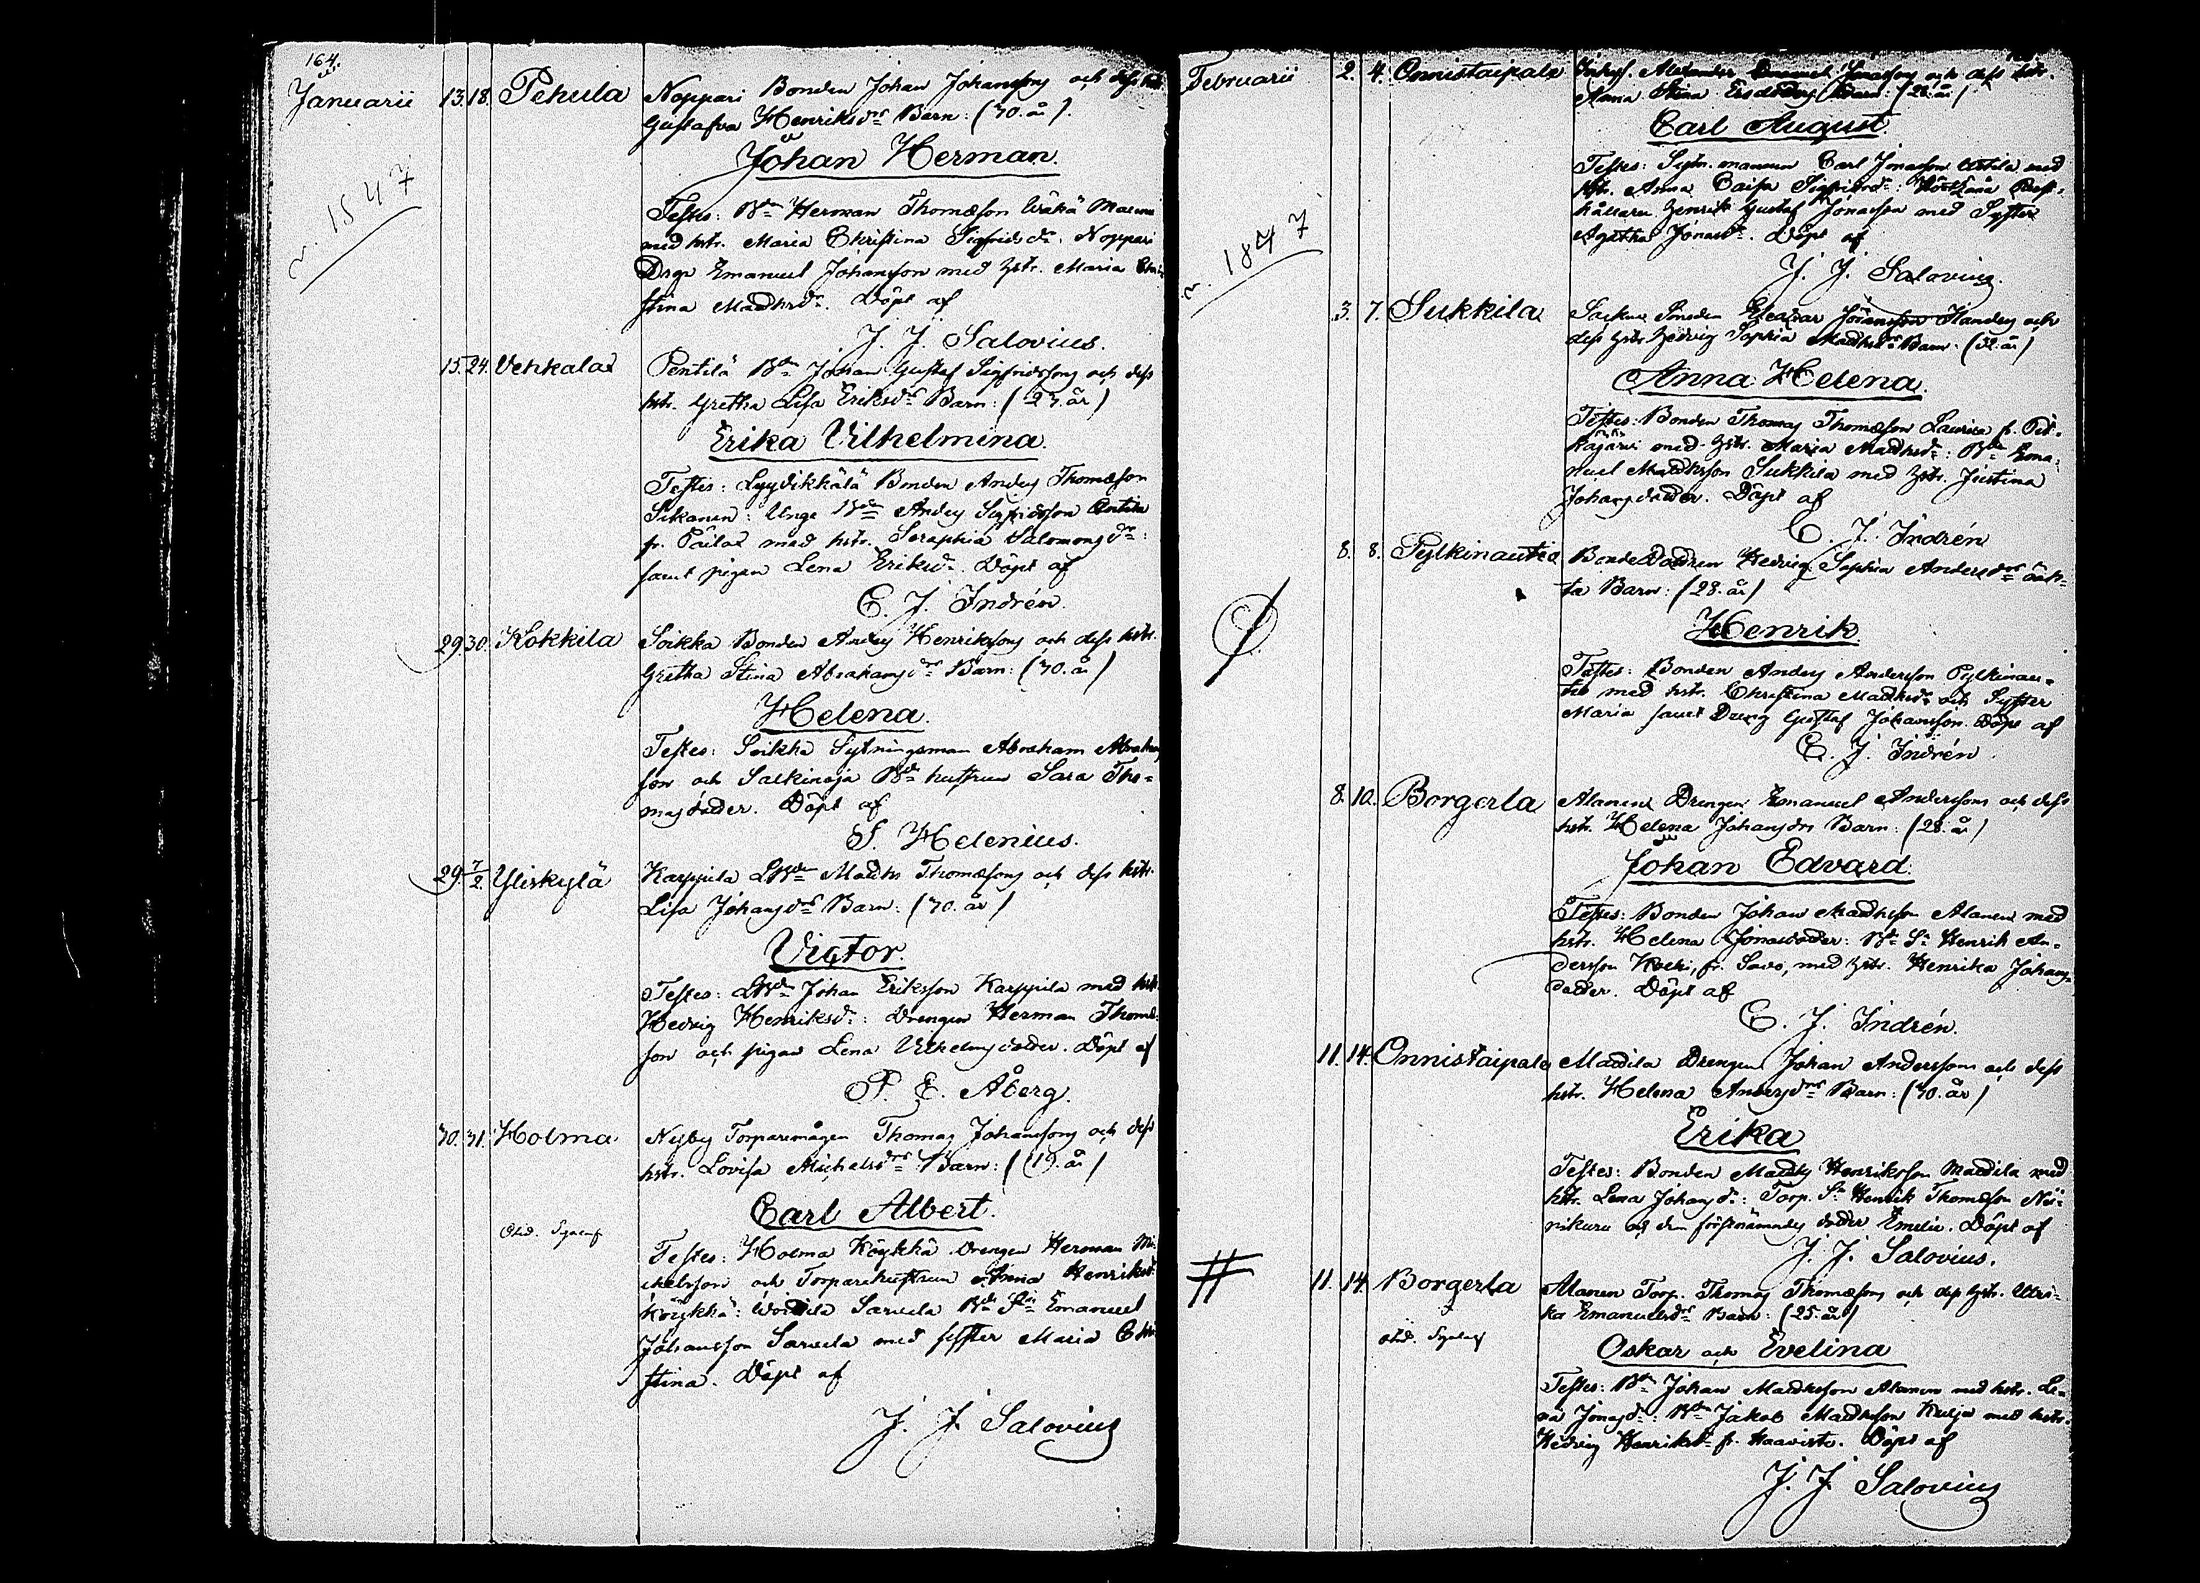 164.
Januarii 13. 18. Pekula Noppari Bonden Johan Johanssons och dess
Gustafva Henriksdr Barn: (30. år).
Johan Herman.
n. 1847
Testes: Bdn Herman Thomæson
med hstr. Maria Christina Sigfridsdr: Noppari
Drgn Emanuel Johansson med hstr. Maria Chri-
stina Mathsdr. Döpt af
J. J. Salovius.
15. 24. Vehkalax Pentilä Bdn Johan Gustaf Sigfridssons och dess
hstr. Gretha Lisa Eriksdr Barn: (23. år)
Erika Vilhelmina.
Testes: Lyydikkälä Bonden Anders Thomæson
Sikanen: Unge Bdn Anders Sigfridsson Antila
fr. Pailax med hstr. Seraphia Salomonsdr:
samt pigan Lena Eriksdr. Döpt af
C. J. Indrén.
29. 30. Kokkila Soikka Bonden Anders Henrikssons och dess hstr.
Gretha Stina Abrahamsdr Barn: (30. år)
Helena.
Testes: Soikka Sytningsman Abraham Abraham
son och Salkinoja Bdn hustrun Sara Tho-
masdotter. Döpt af
S. Helenius.
29. 7/2. Yliskylä Karppila LBdn Matths Thomæsons och dess hstr.
Lisa Johansdr Barn: (30. år)
Victor.
Testes: LBdn Johan Eriksson Karppila med hstr.
Hedvig Henriksdr: Drengen Herman Thomæ-
son och pigan Lena Vilhelmsdotter. Döpt af
P. E. Åberg.
30. 31. Holma Nyby Torparemågen Thomas Johanssons och dess
hstr. Lovisa Michelsdr Barn: (19. år)
Carl Albert.
Testes: Holma Köykkä Drengen Herman Mi-
chelsson och Torparehustrun Anna Henriksdr
Köykkä: Sarvela Bdn Sn Emanuel
Johansson Sarvela med syster Maria Chri-
stina. Döpt af
J. J. Salovius
Februarii 2. 4. Onnistaipale Inhys. Alexander Emanuel Jonassons och dess hstr.
Anna Stina Barn: (28. år)
Carl August.
Testes: Sytn. mannen Carl Jonasson Attila med
hstr. Anna Caisa Sigfridsdr:
hållaren Henrik Gustaf Jonasson med Syster
Agatha Jonasdr. Döpt af
J. J. Salovius.
n. 1847
3. 7. Sukkila Socken Smeden Eleazar Johansson Flanders och
dess hstr Hedvig Sophia Mathsdr Barn: (32. år)
Anna Helena.
Testes: Bonden Thomas Thomæson Laurila fr. Pit-
käjärvi med hstr. Maria Mathsdr: Bdn Ema-
nuel Mathsson Sukkila med hstr. Justina
Johansdotter. Döpt af
C. J. Indrén
8. 8. Pylkinautio Bonde Dottren Hedvig Sophia Andersdrs oäk-
ta Barn: (28. år)
Henrik
Testes: Bonden Anders Andersson Pylkinau-
tio med hstr. Christina Mathsdr och Syster
Maria samt Dreng Gustaf Johansson. Döpt af
C. J. Indrén.
8. 10. Borgerla Alanen Drengen Emanuel Anderssons och dess
hstr. Helena Johansdrs Barn: (28. år)
Johan Edvard.
Testes: Bonden Johan Mathsson Alanen med
hstr. Helena Jonasdotter: Bdn Sn Henrik An-
dersson fr. Savo, med hstr. Henrika Johans-
dotter. Döpt af
C. J. Indrén.
11. 14. Onnistaipale Mattila Drengen Johan Anderssons och dess
hstr. Helena Andersdrs Barn: (30. år)
Erika
Testes: Bonden Maths Henriksson Mattila med
hstr. Lena Johansdr: Torp. Sn Henrik Thomæson Nii-
nikuru och den förstnämndes dotter Emelie. Döpt af
J. J. Salovius.
# 11. 14. Borgerla Alanen Torp. Thomas Thomæsons och dess hstr. Ulri-
ka Emanuelsdr Barn: (25. år)
Oskar och Evelina
Testes: Bdn Johan Mathsson Alanen med hstr. Le-
na Jonasdr: Bdn Jakob Mathsson Kulja med hstr.
Hedvig Henriksdr fr. Haavisto. Döpt af
J. J. Salovius